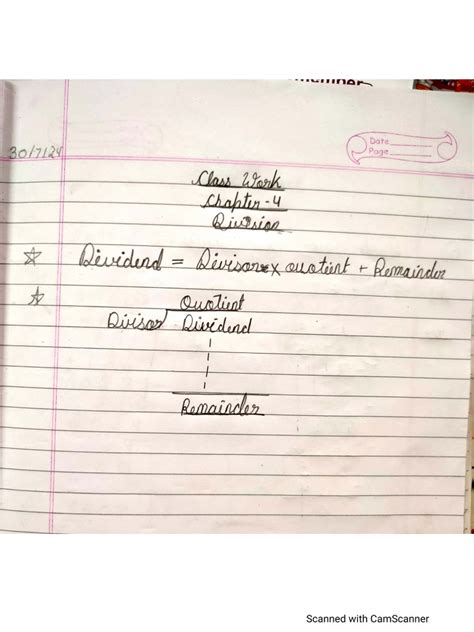 Date
Page
30/7/24
Class Work
Chapter - 4
Division
☆ Dividend = Divisor x Quotient + Remainder
☆ Quotient
Divisor Dividend
Remainder
Scanned with CamScanner